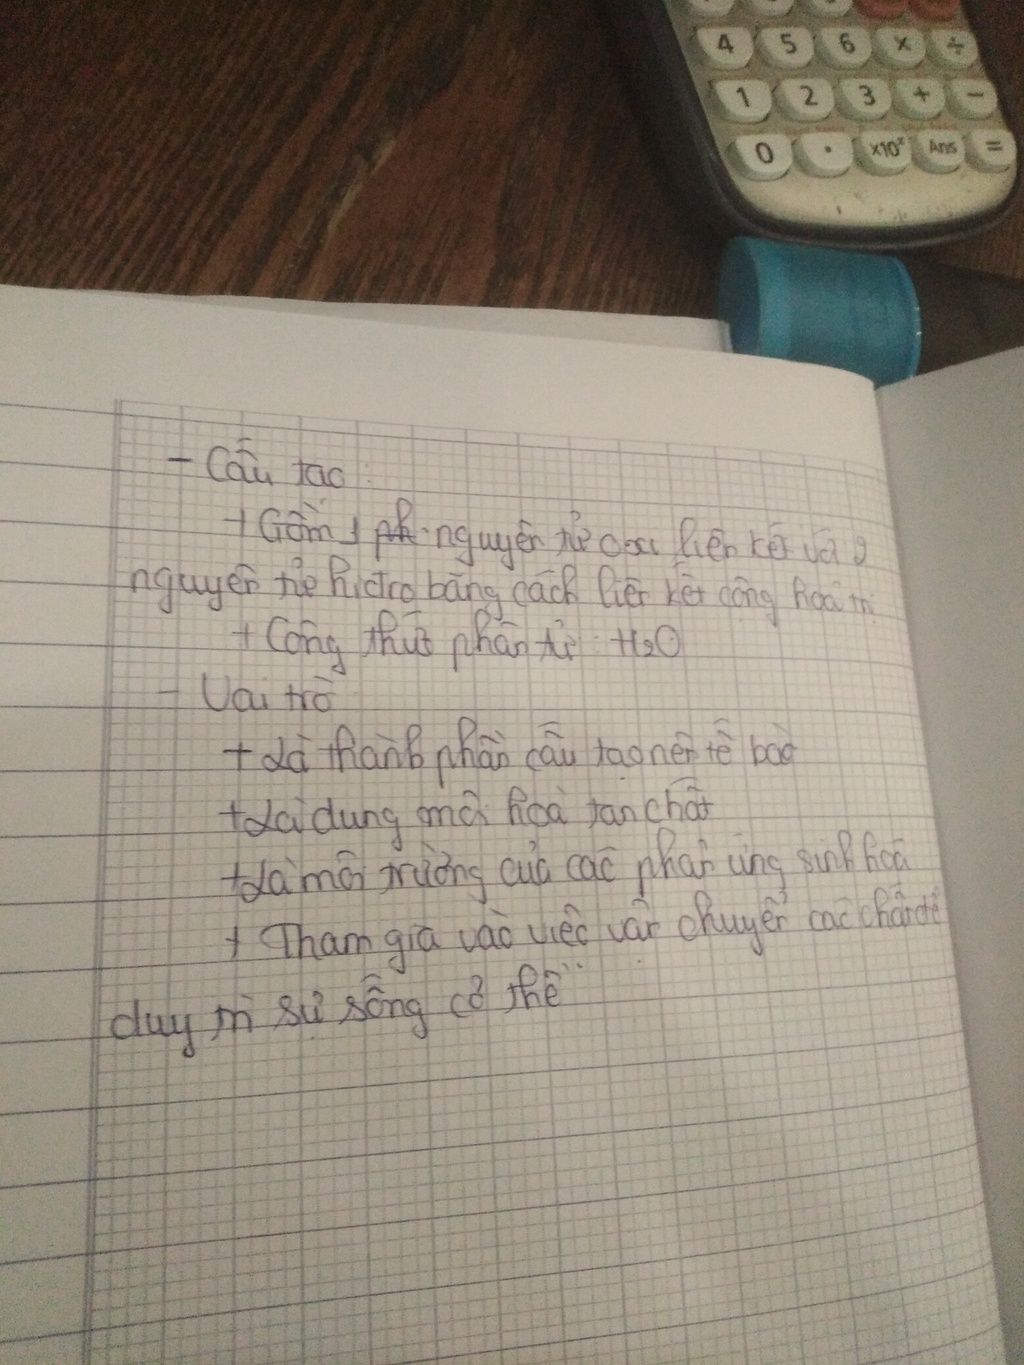 4 5 6 × ÷
1 2 3 + −
0 · ×10ˣ Ans =
- Cấu tạo:
+ Gồm 1 nguyên tử oxi liên kết với 2
nguyên tử hiđro bằng cách liên kết cộng hoá trị
+ Công thức phân tử: H2O
- Vai trò
+ Là thành phần cấu tạo nên tế bào
+ Là dung môi hoà tan chất
+ Là môi trường của các phản ứng sinh hoá
+ Tham gia vào việc vận chuyển các chất để
duy trì sự sống cơ thể